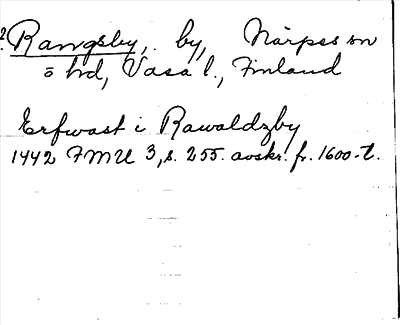 2. Rangsby, by, Närpes sn
ö hrd, Vasa l., Finland
Erfwast i Rawaldzby
1442 FMU 3, s. 255. avskr. fr. 1600-t.